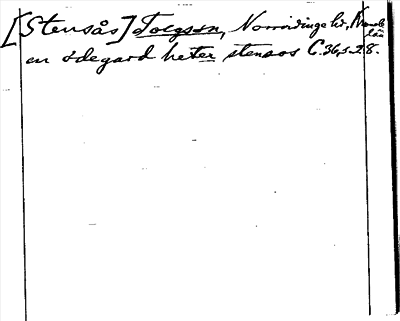 [Stensås] Tolgs sn, Norrvidinge hd, Kronob. län
en ödegard heter stensos C. 36, s. 28.